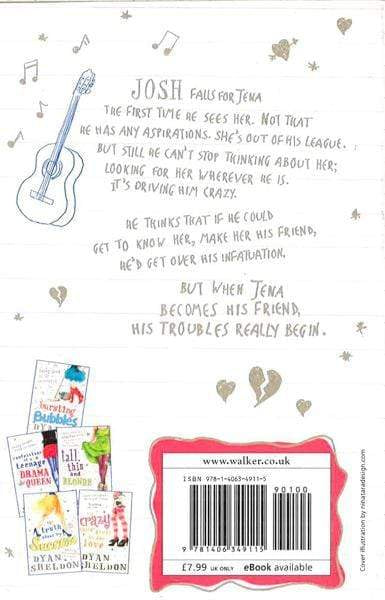 JOSH FALLS FOR JENA
THE FIRST TIME HE SEES HER. NOT THAT
HE HAS ANY ASPIRATIONS. SHE'S OUT OF HIS LEAGUE.
BUT STILL HE CAN'T STOP THINKING ABOUT HER;
LOOKING FOR HER WHEREVER HE IS.
IT'S DRIVING HIM CRAZY.
HE THINKS THAT IF HE COULD
GET TO KNOW HER, MAKE HER HIS FRIEND,
HE'D GET OVER HIS INFATUATION.
BUT WHEN JENA
BECOMES HIS FRIEND,
HIS TROUBLES REALLY BEGIN.
bursting
Bubbles
Confessions of a
teenage
DRAMA
QUEEN
tall,
thin
and
BLONDE
DYAN
SHELDON
crazy
love
DYAN
SHELDON
www.walker.co.uk
ISBN 978-1-4063-4911-5
90100
9 781406 349115
£7.99 UK ONLY eBook available
Cover illustration by